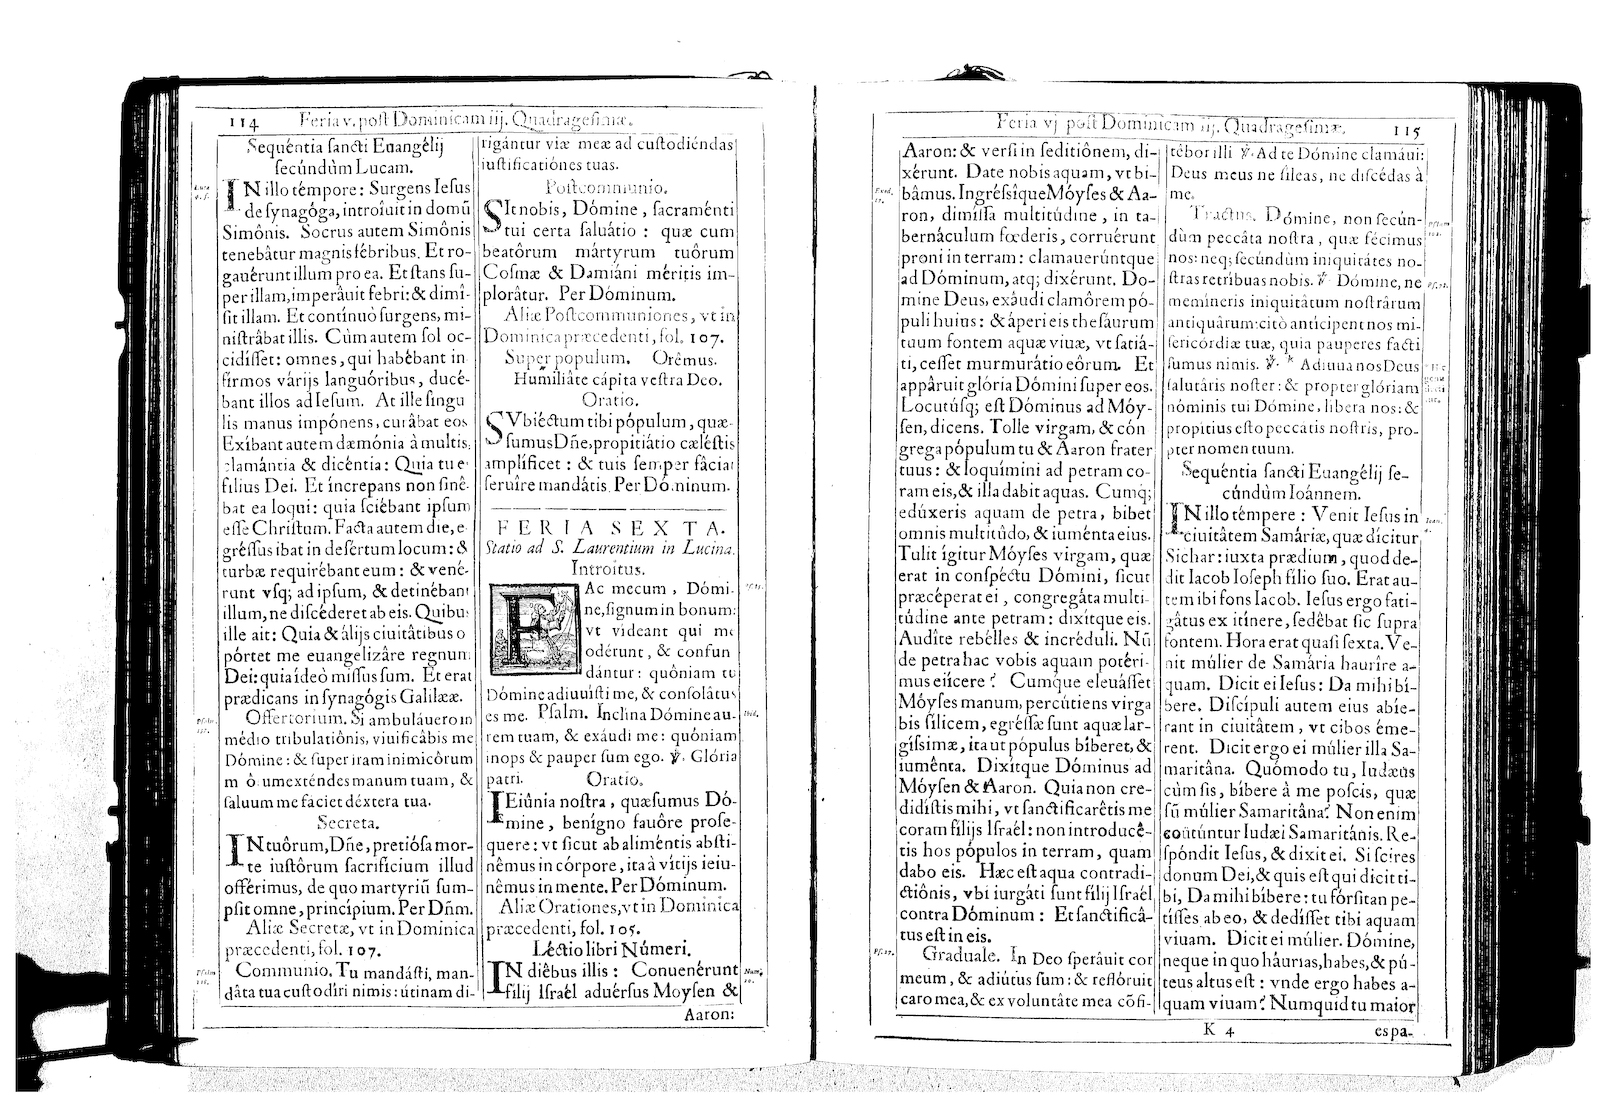 114 Feria v. post Dominicam iij. Quadragesimæ.
Sequéntia sancti Euangélij
secúndùm Lucam.
IN illo témpore: Surgens Iesus
de synagóga, introîuit in domũ
Simônis. Socrus autem Simônis
tenebâtur magnis fébribus. Et ro-
gauérunt illum pro ea. Et stans su-
per illam, imperâuit febri: & dimî-
sit illam. Et contínuò surgens, mi-
nistrâbat illis. Cùm autem sol oc-
cidísset: omnes, qui habêbant in
fírmos várijs languóribus, ducé-
bant illos ad Iesum. At ille singu
lis manus impónens, curâbat eos
Exîbant autem dæmónia à multis:
clamántia & dicéntia: Quia tu e
filius Dei. Et íncrepans non sinê-
bat ea loqui: quia sciébant ipsum
esse Christum. Facta autem die, e
gréssus ibat in desértum locum: &
turbæ requirébant eum: & vené-
runt vsq; ad ipsum, & detinébant
illum, ne discéderet ab eis. Quibu:
ille ait: Quia & álijs ciuitâtibus o
pórtet me euangelizâre regnum
Dei: quia ídeò missus sum. Et erat
prædicans in synagógis Galilææ.
Offertorium. Si ambuláuero in
médio tribulatiônis, viuificâbis me
Dómine: & super iram inimicôrum
m ô um exténdes manum tuam, &
saluum me faciet déxtera tua.
Secreta.
IN tuôrum, Dñe, pretiósa mor-
te iustôrum sacrificium illud
offérimus, de quo martyriũ sum-
psit omne, princípium. Per Dñm.
Aliæ Secretæ, vt in Dominica
præcedenti, fol. 107.
Communio. Tu mandásti, man-
dâta tua custodîri nimis: útinam di-
rigántur viæ meæ ad custodiéndas
iustificatiónes tuas.
Postcommunio.
SIt nobis, Dómine, sacraménti
tui certa saluâtio: quæ cum
beatôrum mártyrum tuôrum
Cosmæ & Damiáni méritis im-
plorâtur. Per Dóminum.
Aliæ Postcommuniones, vt in
Dominica præcedenti, fol. 107.
Super populum. Orêmus.
Humiliâte cápita vestra Deo.
Oratio.
SVbiéctum tibi pópulum, quæ-
sumus Dñe, propitiátio cæléstis
amplíficet: & tuis semper fáciat
seruîre mandátis. Per Dóminum.
FERIA SEXTA.
Statio ad S. Laurentium in Lucina.
Introitus.
FAc mecum, Dómi-
ne, signum in bonum:
vt videant qui me
odérunt, & confun
dántur: quôniam tu
Dómine adiuuísti me, & consolâtus
es me. Psalm. Inclîna Dómine au-
rem tuam, & exáudi me: quóniam
inops & pauper sum ego. ℣. Glória
patri. Oratio.
IEiúnia nostra, quæsumus Dó-
mine, benígno fauôre prose-
quere: vt sicut ab aliméntis absti-
nêmus in córpore, ita à vítijs ieiu-
nêmus in mente. Per Dóminum.
Aliæ Orationes, vt in Dominica
præcedenti, fol. 105.
Léctio libri Númeri.
IN diêbus illis: Conuenérunt
fílij Israél aduérsus Moysen &
Aaron:
Feria vj post Dominicam iij. Quadragesimæ. 115
Aaron: & versi in seditiônem, di-
xérunt. Date nobis aquam, vt bi-
bâmus. Ingréssique Móyses & Aa-
ron, dimíssa multitúdine, in ta-
bernáculum fœderis, corruérunt
proni in terram: clamauerúntque
ad Dóminum, atq; dixérunt. Do-
mine Deus, exáudi clamôrem pó-
puli huius: & áperi eis thesáurum
tuum fontem aquæ viuæ, vt satiâ-
ti, cesset murmurátio eôrum. Et
appâruit glória Dómini super eos.
Locutúsq; est Dóminus ad Móy-
sen, dicens. Tolle virgam, & cón
grega pópulum tu & Aaron frater
tuus: & loquímini ad petram co-
ram eis, & illa dabit aquas. Cumq;
edúxeris aquam de petra, bibet
omnis multitúdo, & iuménta eius.
Tulit ígitur Móyses virgam, quæ
erat in conspéctu Dómini, sicut
præcéperat ei, congregáta multi-
túdine ante petram: dixítque eis.
Audîte rebélles & incréduli. Nũ
de petra hac vobis aquam potéri-
mus eiícere? Cumque eleuásset
Móyses manum, percútiens virga
bis sílicem, egréssæ sunt aquæ lar-
gíssimæ, ita ut pópulus bíberet, &
iumênta. Dixítque Dóminus ad
Móysen & Aaron. Quia non cre-
didístis mihi, vt sanctificarêtis me
coram fílijs Israél: non introducê-
tis hos pópulos in terram, quam
dabo eis. Hæc est aqua contradi-
ctiônis, vbi iurgáti sunt fílij Israél
contra Dóminum: Et sanctificâ-
tus est in eis.
Graduale. In Deo sperâuit cor
meum, & adiútus sum: & reflóruit
caro mea, & ex voluntáte mea cõfi-
tébor illi ℣. Ad te Dómine clamáui:
Deus meus ne síleas, ne discédas à
me.
Tractus. Dómine, non secún-
dùm peccâta nostra, quæ fécimus
nos: neq; secúndùm iniquitátes no-
stras retríbuas nobis. ℣ Dómine, ne
memíneris iniquitâtum nostrârum
antiquârum: citò antícipent nos mi-
sericórdiæ tuæ, quia páuperes facti
sumus nimis. ℣. * Adiuua nos Deus
salutáris noster: & propter glóriam
nóminis tui Dómine, líbera nos: &
propítius esto peccátis nostris, pro-
pter nomen tuum.
Sequéntia sancti Euangélij se-
cúndùm Ioánnem.
IN illo témpore: Venit Iesus in
ciuitâtem Samáriæ, quæ dícitur
Sichar: iuxta prædium, quod de-
dit Iacob Ioseph filio suo. Erat au-
tem ibi fons Iacob. Iesus ergo fati-
gâtus ex itínere, sedêbat sic supra
fontem. Hora erat quasi sexta. Ve-
nit múlier de Samária haurîre a-
quam. Dicit ei Iesus: Da mihi bí-
bere. Discípuli autem eius abíe-
rant in ciuitâtem, vt cibos éme-
rent. Dicit ergo ei múlier illa Sa-
maritâna. Quómodo tu, Iudæus
cùm sis, bíbere à me poscis, quæ
sũ múlier Samaritâna? Non enim
coütúntur Iudæi Samaritánis. Re-
spóndit Iesus, & dixit ei. Si scires
donum Dei, & quis est qui dicit ti-
bi, Da mihi bíbere: tu fórsitan pe-
tísses ab eo, & dedísset tibi aquam
viuam. Dicit ei múlier. Dómine,
neque in quo háurias, habes, & pú-
teus altus est: vnde ergo habes a-
quam viuam? Numquid tu maior
K 4 es pa-